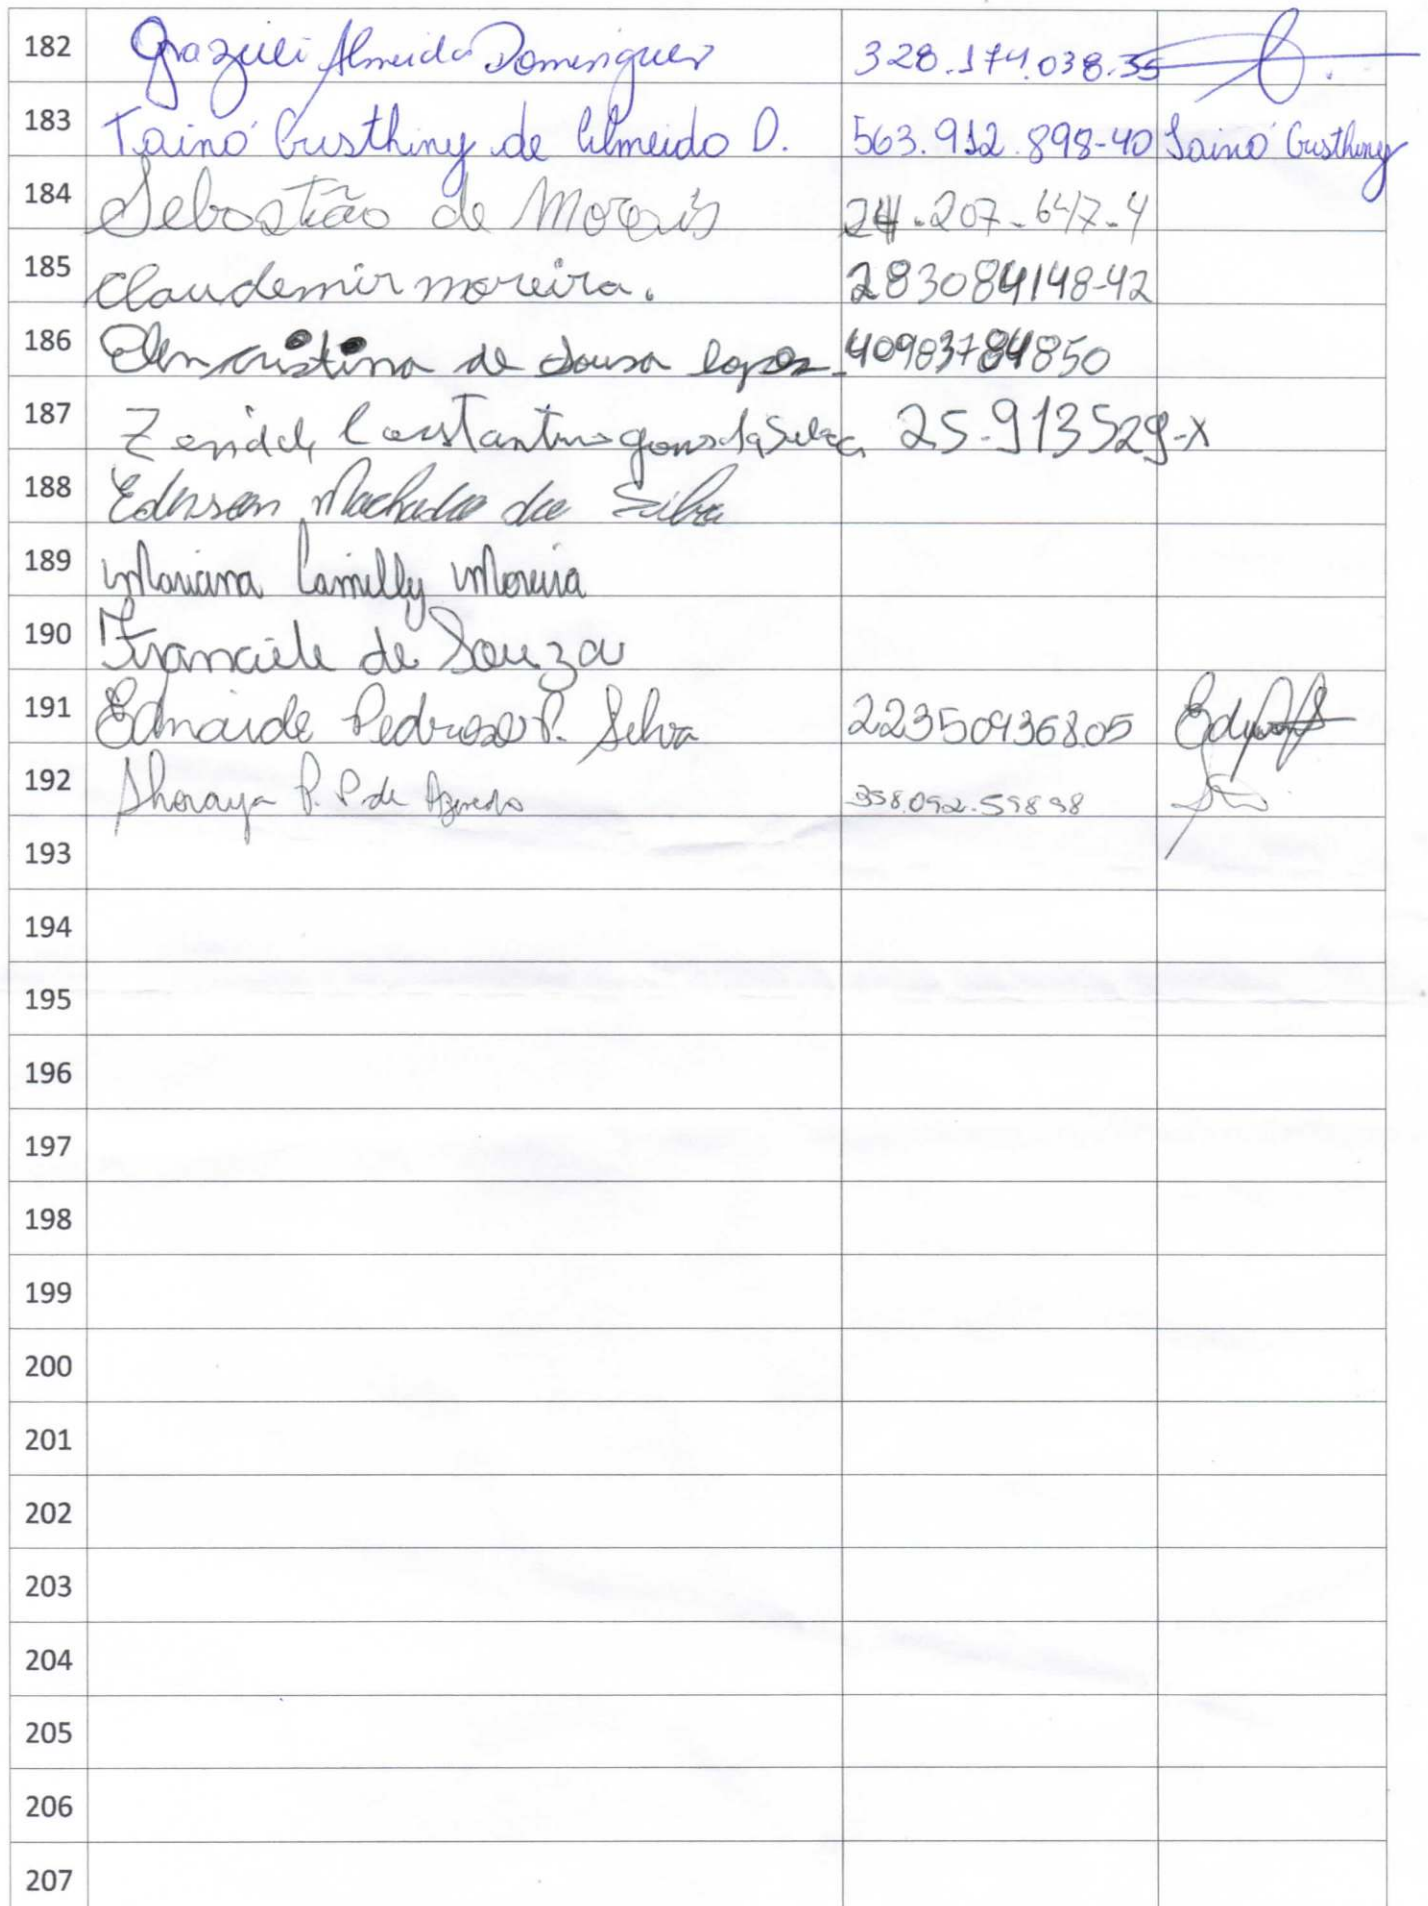 182 Grazieli Almeida Domingues 328.174.038.35
183 Tainá Cristhiny de Almeida D. 563.912.898-40 Tainá Cristhiny
184 Sebastião de Morais 207-647-4
185 Claudemir moreira. 283084148-42
186 Elen cristina de Sousa lopes 40983784850
187 Constantino da Silva 25-913529-x
188 Ederson Machado da Silva
189 Mariana Camilly Moreira
190 Franciele de Souza
191 Ednaide Pedroso P. Silva 22350936805
192 Shoraya P. P de Azevedo 358.092.598 38
193
194
195
196
197
198
199
200
201
202
203
204
205
206
207